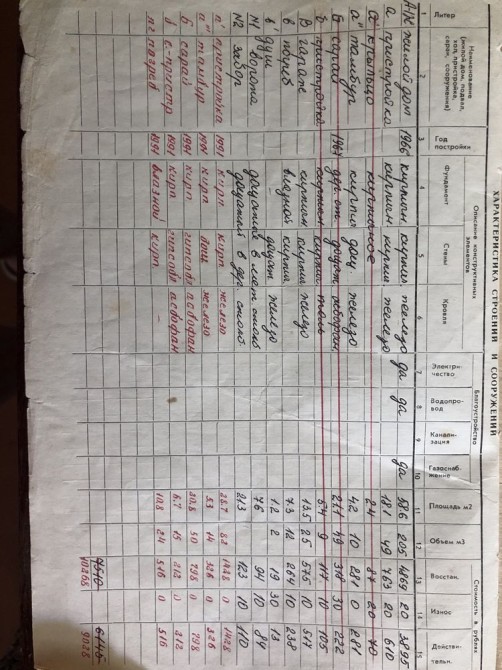 ХАРАКТЕРИСТИКА СТРОЕНИЙ И СООРУЖЕНИЙ
Литер | Наименование (жилой дом, подвал, хол. пристройка, сарай, сооружения) | Год постройки | Описание конструктивных элементов | Благоустройство | Площадь м2 | Объем м3 | Стоимость в рублях
Фундамент | Стены | Кровля | Электричество | Водопровод | Канализация | Газоснабжение | Восстан. | Износ | Действительн.
1 | 2 | 3 | 4 | 5 | 6 | 7 | 8 | 9 | 10 | 11 | 12 | 13 | 14 | 15
жилой дом 1966 кирпичн кирпич железо да да да 58.6 205 4869 20
а пристройка кирпичн кирпич железо 18.1 49 763 20 610
а' крыльцо кирпичное 2.4 87 20 70
а" тамбур кирпич дощ железо 4.2 10 281 0 281
Б сарай 1967 21.1 49 318 30 222
пристройка кирпич 5.4 9 117 10 105
В гараж кирпичн кирпич железо 13.5 25 575 10 517
в погреб кирпич 7.3 12 264 10 238
в' душ дощат железо 1.2 2 19 30 13
N1 ворота 7.6 94 10 84
N2 забор 21.3 123 10 110
п' пристройка 1991 кирп кирп железо 0 1428
а" тамбур 1991 кирп дощ железо 5.3 14 326 0 326
Б сарай 1991 кирп 20.8 50 798 0 798
б 1991 кирп 6.7 15 212 0 212
пг погреб 1991 кирп – 10.8 24 516 0 516
9510 6445
10265 9028